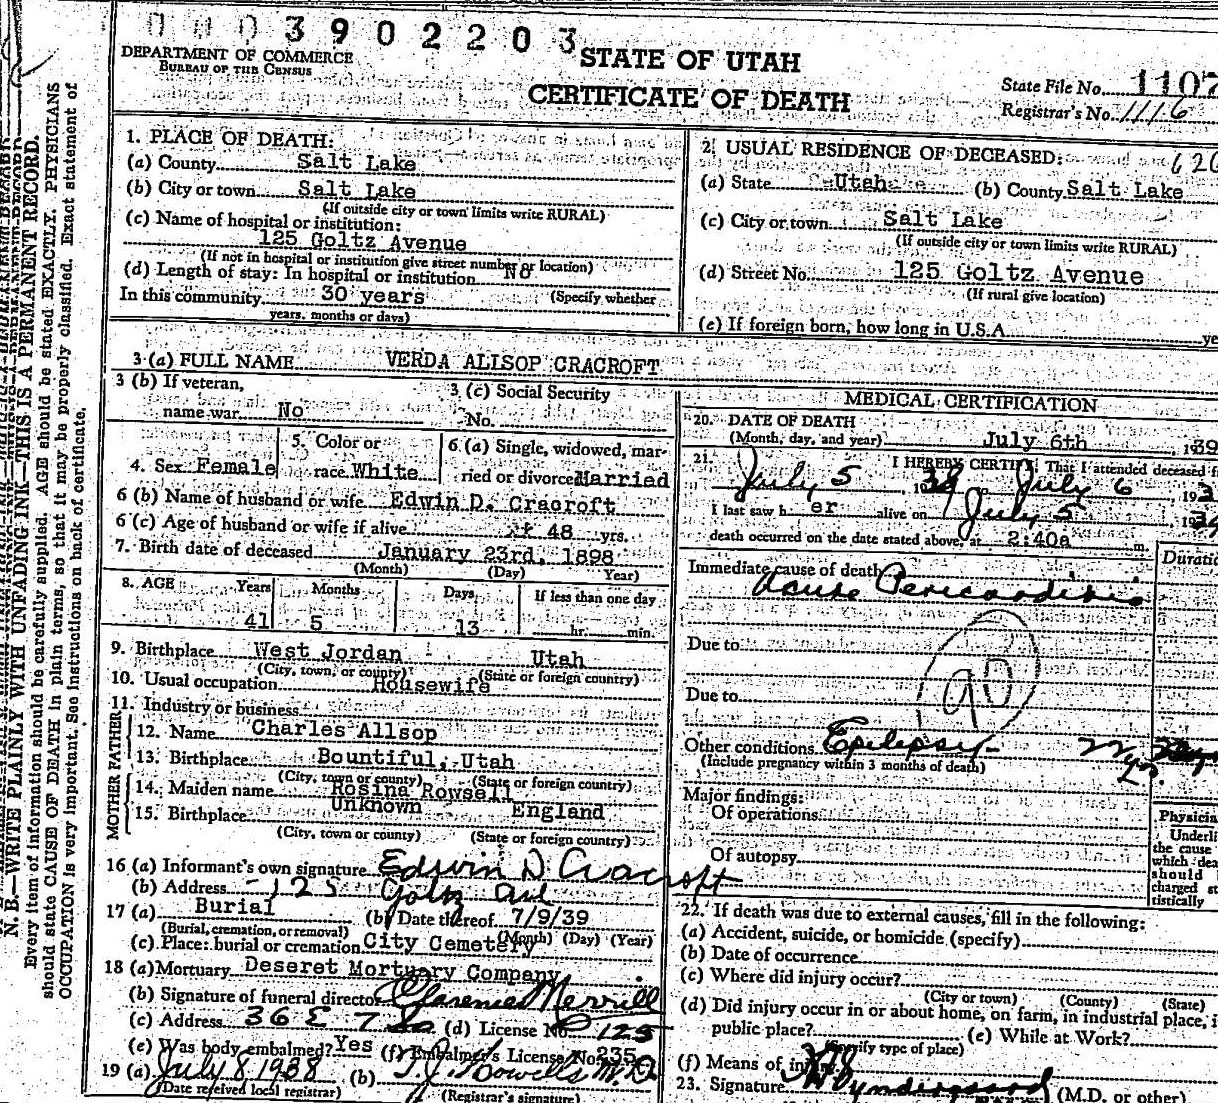 0003902203
DEPARTMENT OF COMMERCE
BUREAU OF THE CENSUS
STATE OF UTAH
CERTIFICATE OF DEATH
State File No. 1107
Registrar's No. 1116
N. B.—WRITE PLAINLY WITH UNFADING INK—THIS IS A PERMANENT RECORD.
Every item of information should be carefully supplied. AGE should be stated EXACTLY. PHYSICIANS
should state CAUSE OF DEATH in plain terms, so that it may be properly classified. Exact statement of
OCCUPATION is very important. See instructions on back of certificate.
1. PLACE OF DEATH:
(a) County Salt Lake
(b) City or town Salt Lake
(If outside city or town limits write RURAL)
(c) Name of hospital or institution:
125 Goltz Avenue
(If not in hospital or institution give street number or location)
(d) Length of stay: In hospital or institution No
In this community 30 years (Specify whether
years, months or days)
2. USUAL RESIDENCE OF DECEASED: 626
(a) State Utah (b) County Salt Lake
(c) City or town Salt Lake
(If outside city or town limits write RURAL)
(d) Street No. 125 Goltz Avenue
(If rural give location)
(e) If foreign born, how long in U.S.A. ye
3 (a) FULL NAME VERDA ALLSOP CRACROFT
3 (b) If veteran,
name war No
3 (c) Social Security
No.
4. Sex Female
5. Color or
race White
6. (a) Single, widowed, mar-
ried or divorced Married
6 (b) Name of husband or wife Edwin D. Cracroft
6 (c) Age of husband or wife if alive 48 yrs.
7. Birth date of deceased January 23rd, 1898
(Month) (Day) Year)
8. AGE Years Months Days If less than one day
41 5 13 hr. min.
9. Birthplace West Jordan Utah
(City, town, or county) (State or foreign country)
10. Usual occupation Housewife
11. Industry or business
FATHER
12. Name Charles Allsop
13. Birthplace Bountiful, Utah
(City, town or county) (State or foreign country)
MOTHER
14. Maiden name Rosina Rowsell
15. Birthplace Unknown England
(City, town or county) (State or foreign country)
16 (a) Informant's own signature Edwin D Cracroft
(b) Address 125 Goltz Ave
17 (a) Burial (b) Date thereof 7/9/39
(Burial, cremation, or removal) (Month) (Day) (Year)
(c) Place: burial or cremation City Cemetery
18 (a) Mortuary Deseret Mortuary Company
(b) Signature of funeral director Clarence Merrill
(c) Address 36 E 7 So (d) License No. 125
(e) Was body embalmed? Yes (f) Embalmer's License No. 235
19 (a) July 8 1938 (b) T. J. Howells M.D.
(Date received local registrar) (Registrar's signature)
MEDICAL CERTIFICATION
20. DATE OF DEATH
(Month, day, and year) July 6th 39
21. I HEREBY CERTIFY, That I attended deceased f
July 5, 1939 July 6, 193
I last saw her alive on July 5, 1939
death occurred on the date stated above, at 2:40a m.
Duratio
Immediate cause of death
Acute Pericarditis
Due to
90
Due to
Other conditions Epilepsy
(Include pregnancy within 3 months of death)
Major findings:
Of operations
Of autopsy
Physicia
Underli
the cause
which dea
should
charged st
tistically
22. If death was due to external causes, fill in the following:
(a) Accident, suicide, or homicide (specify)
(b) Date of occurrence
(c) Where did injury occur?
(City or town) (County) (State)
(d) Did injury occur in or about home, on farm, in industrial place, i
public place? (e) While at Work?
(Specify type of place)
(f) Means of injury
23. Signature (M.D. or other)